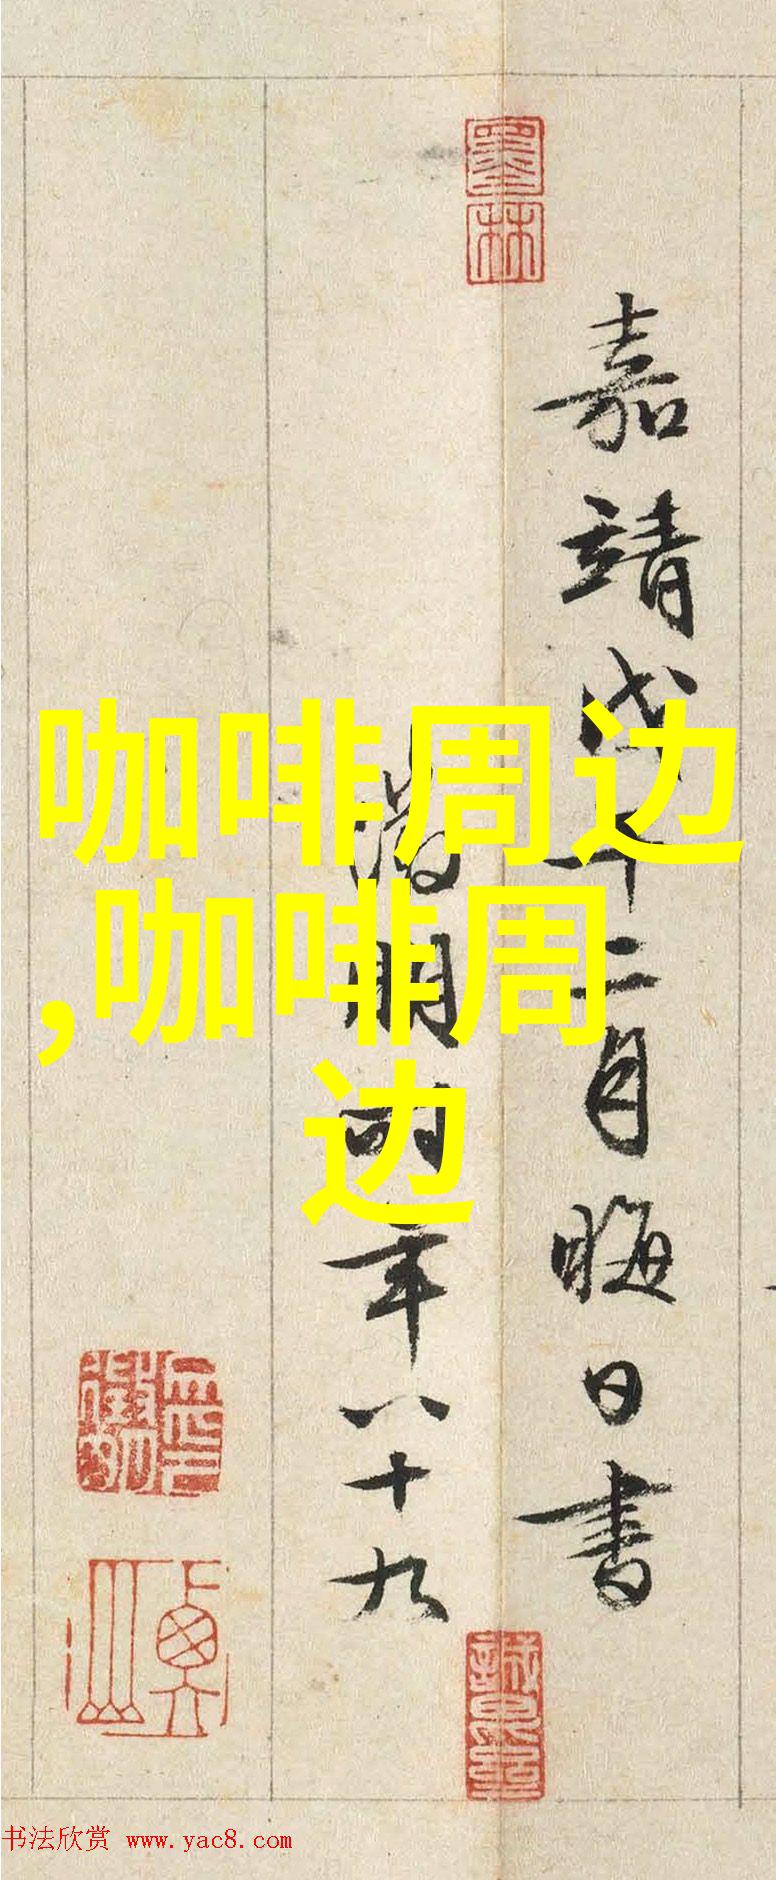 嘉靖戊午二月晦日書
徵明時年八十九
咖啡周边
,咖啡周
边
墨林
书法欣赏 www.yac8.com